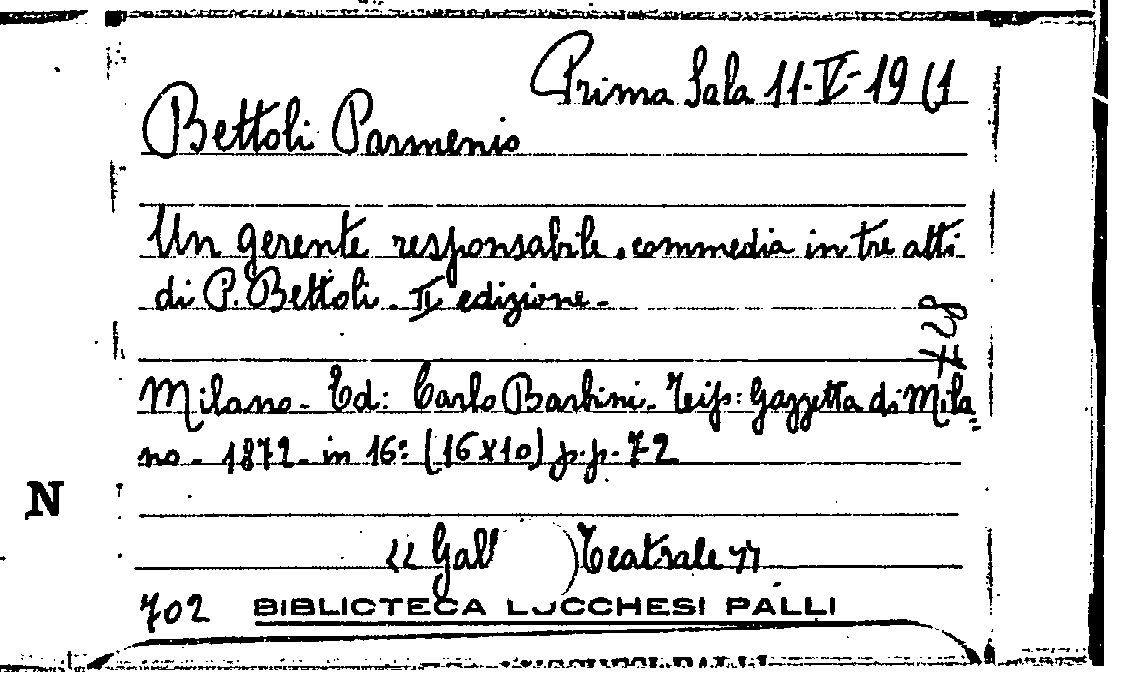 Prima Sala 11-V-19 (1
Bettoli Parmenio
Un gerente responsabile. commedia in tre atti
di P. Bettoli - II edizione -
728
Milano - Ed: Carlo Barbini - Teip: Gazzetta di Mila=
no - 1872 - in 16: (16X10) p.p. 72
N
"Gall Teatrale"
702 BIBLIOTECA LUCCHESI PALLI